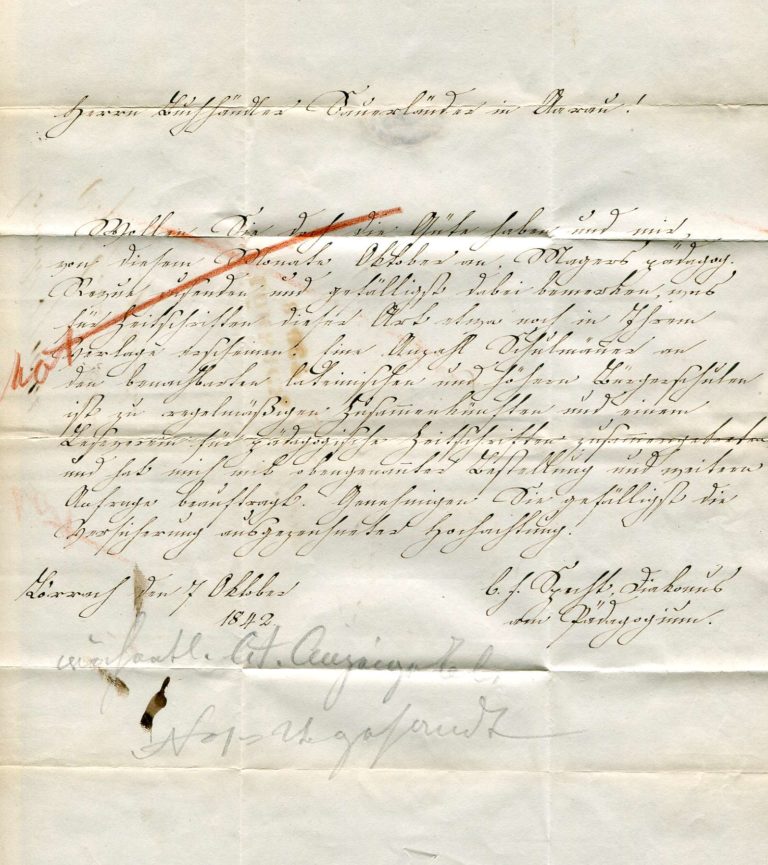 Herrn Buchhändler Sauerländer in Aarau!
Wollen Sie doch die Güte haben und mir,
von diesem Monate Oktober an, Magers pädagog.
Revue zusenden und gefälligst dabei bemerken, was
für Zeitschriften dieser Art etwa noch in Ihrem
Verlage erscheinen. Eine Anzahl Schulmänner an
den benachbarten lateinischen und höhern Bürgerschulen
ist zu regelmäßigen Zusammenkünften und einem
Leseverein für pädagogische Zeitschriften zusammengetreten
und hat mich mit obengenannter Bestellung und weitern
Anfrage beauftragt. Genehmigen Sie gefälligst die
Versicherung ausgezeichneter Hochachtung.
Lörrach den 7 Oktober
1842
C. F. Specht, Diakonus
am Pädagogium.
gesandt